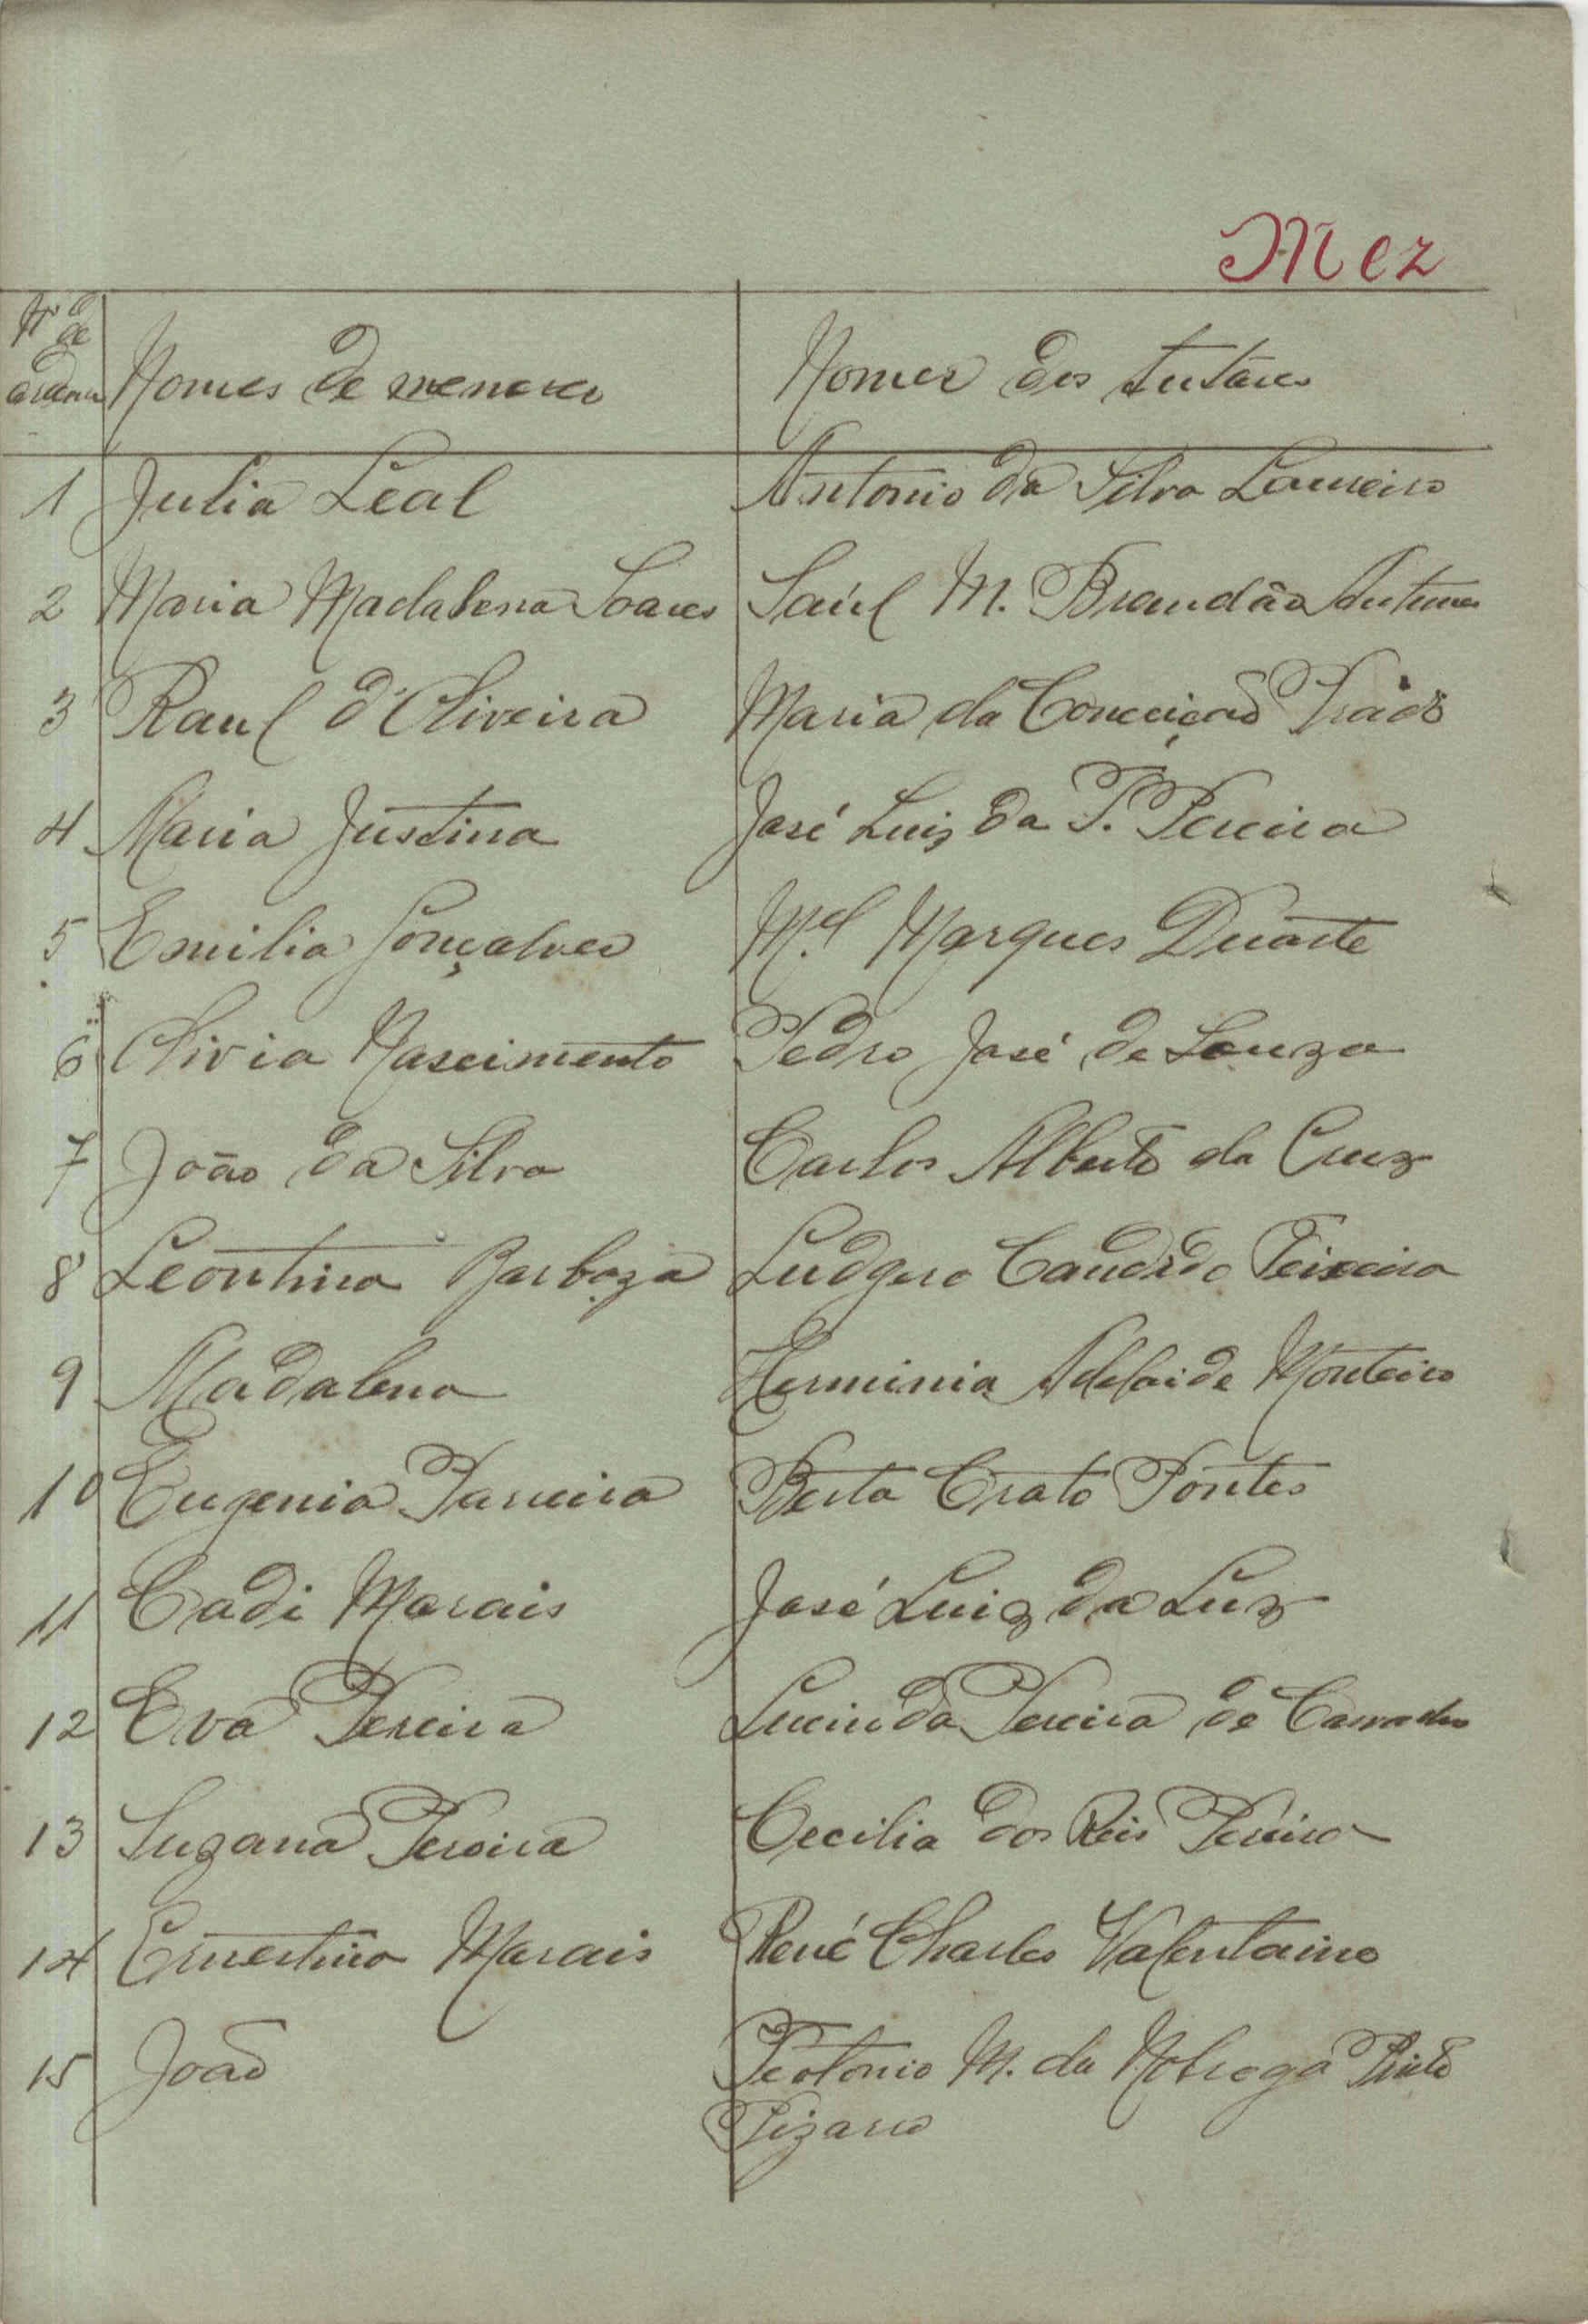 Mez
Nº de ordem Nomes de menores Nomes dos tutores
1 Julia Leal Antonio da Silva Loureiro
2 Maria Madalena Soares Saúl M. Brandão Antunes
3 Raul d'Oliveira Maria da Conceição
4 Maria Justina José Luiz da P. Pereira
5 Emilia Gonçalves M.el Marques Duarte
6 Olivia Nascimento Pedro José de Souza
7 João da Silva Carlos Alberto da Cruz
8 Leontina Barboza Ludgero Candido Teixeira
9 Madalena Herminia Adelaide Monteiro
10 Eugenia Parreira Berta Crato Fontes
11 Cadi Morais José Luiz da Luz
12 Eva Pereira Lucinda Pereira de
13 Suzana Pereira Cecilia dos Reis Pereira
14 Ernestina Morais René Charles Valentaino
15 João Teotonio M. da Nobrega Pinto
Pizarro